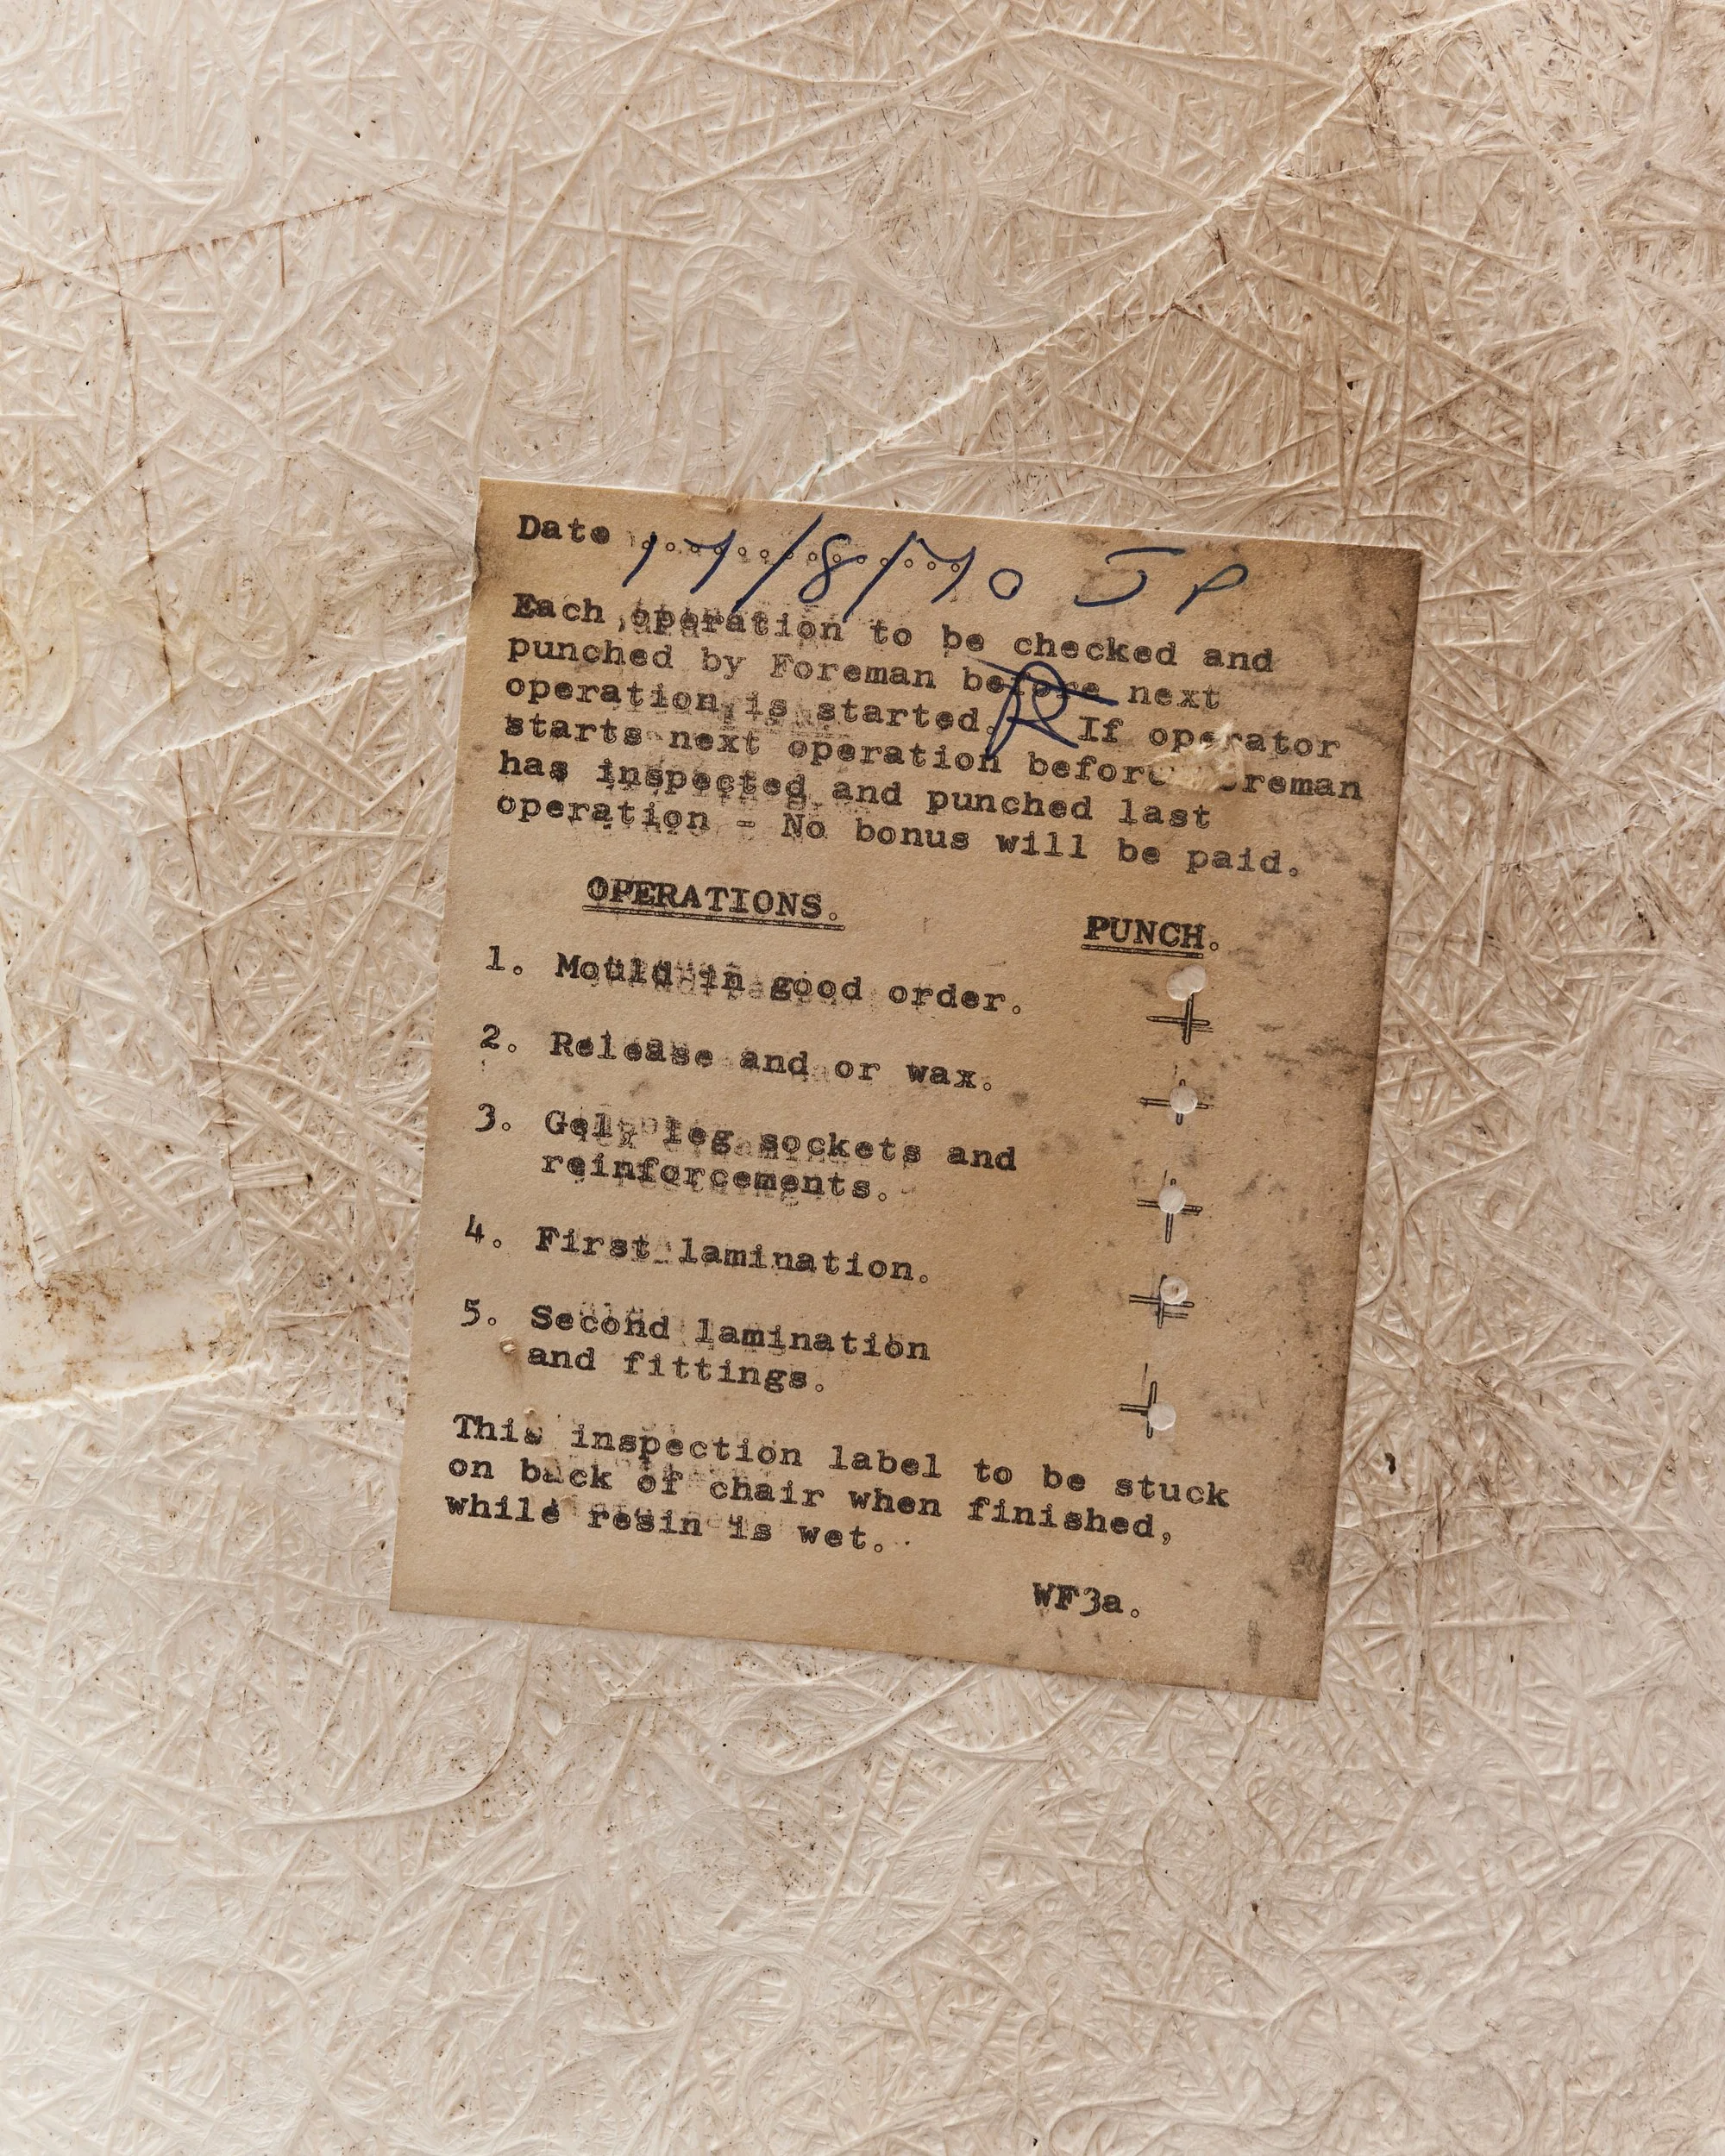 Date 17/8/70 JP
Each operation to be checked and
punched by Foreman before next
operation is started. R If operator
starts next operation before Foreman
has inspected and punched last
operation - No bonus will be paid.
OPERATIONS. PUNCH.
1. Mould in good order.
2. Release and or wax.
3. Gel, leg sockets and
reinforcements.
4. First lamination.
5. Second lamination
and fittings.
This inspection label to be stuck
on back of chair when finished,
while resin is wet.
WF3a.